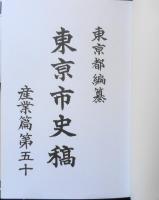 東京都編纂
東京市史稿
産業篇第五十